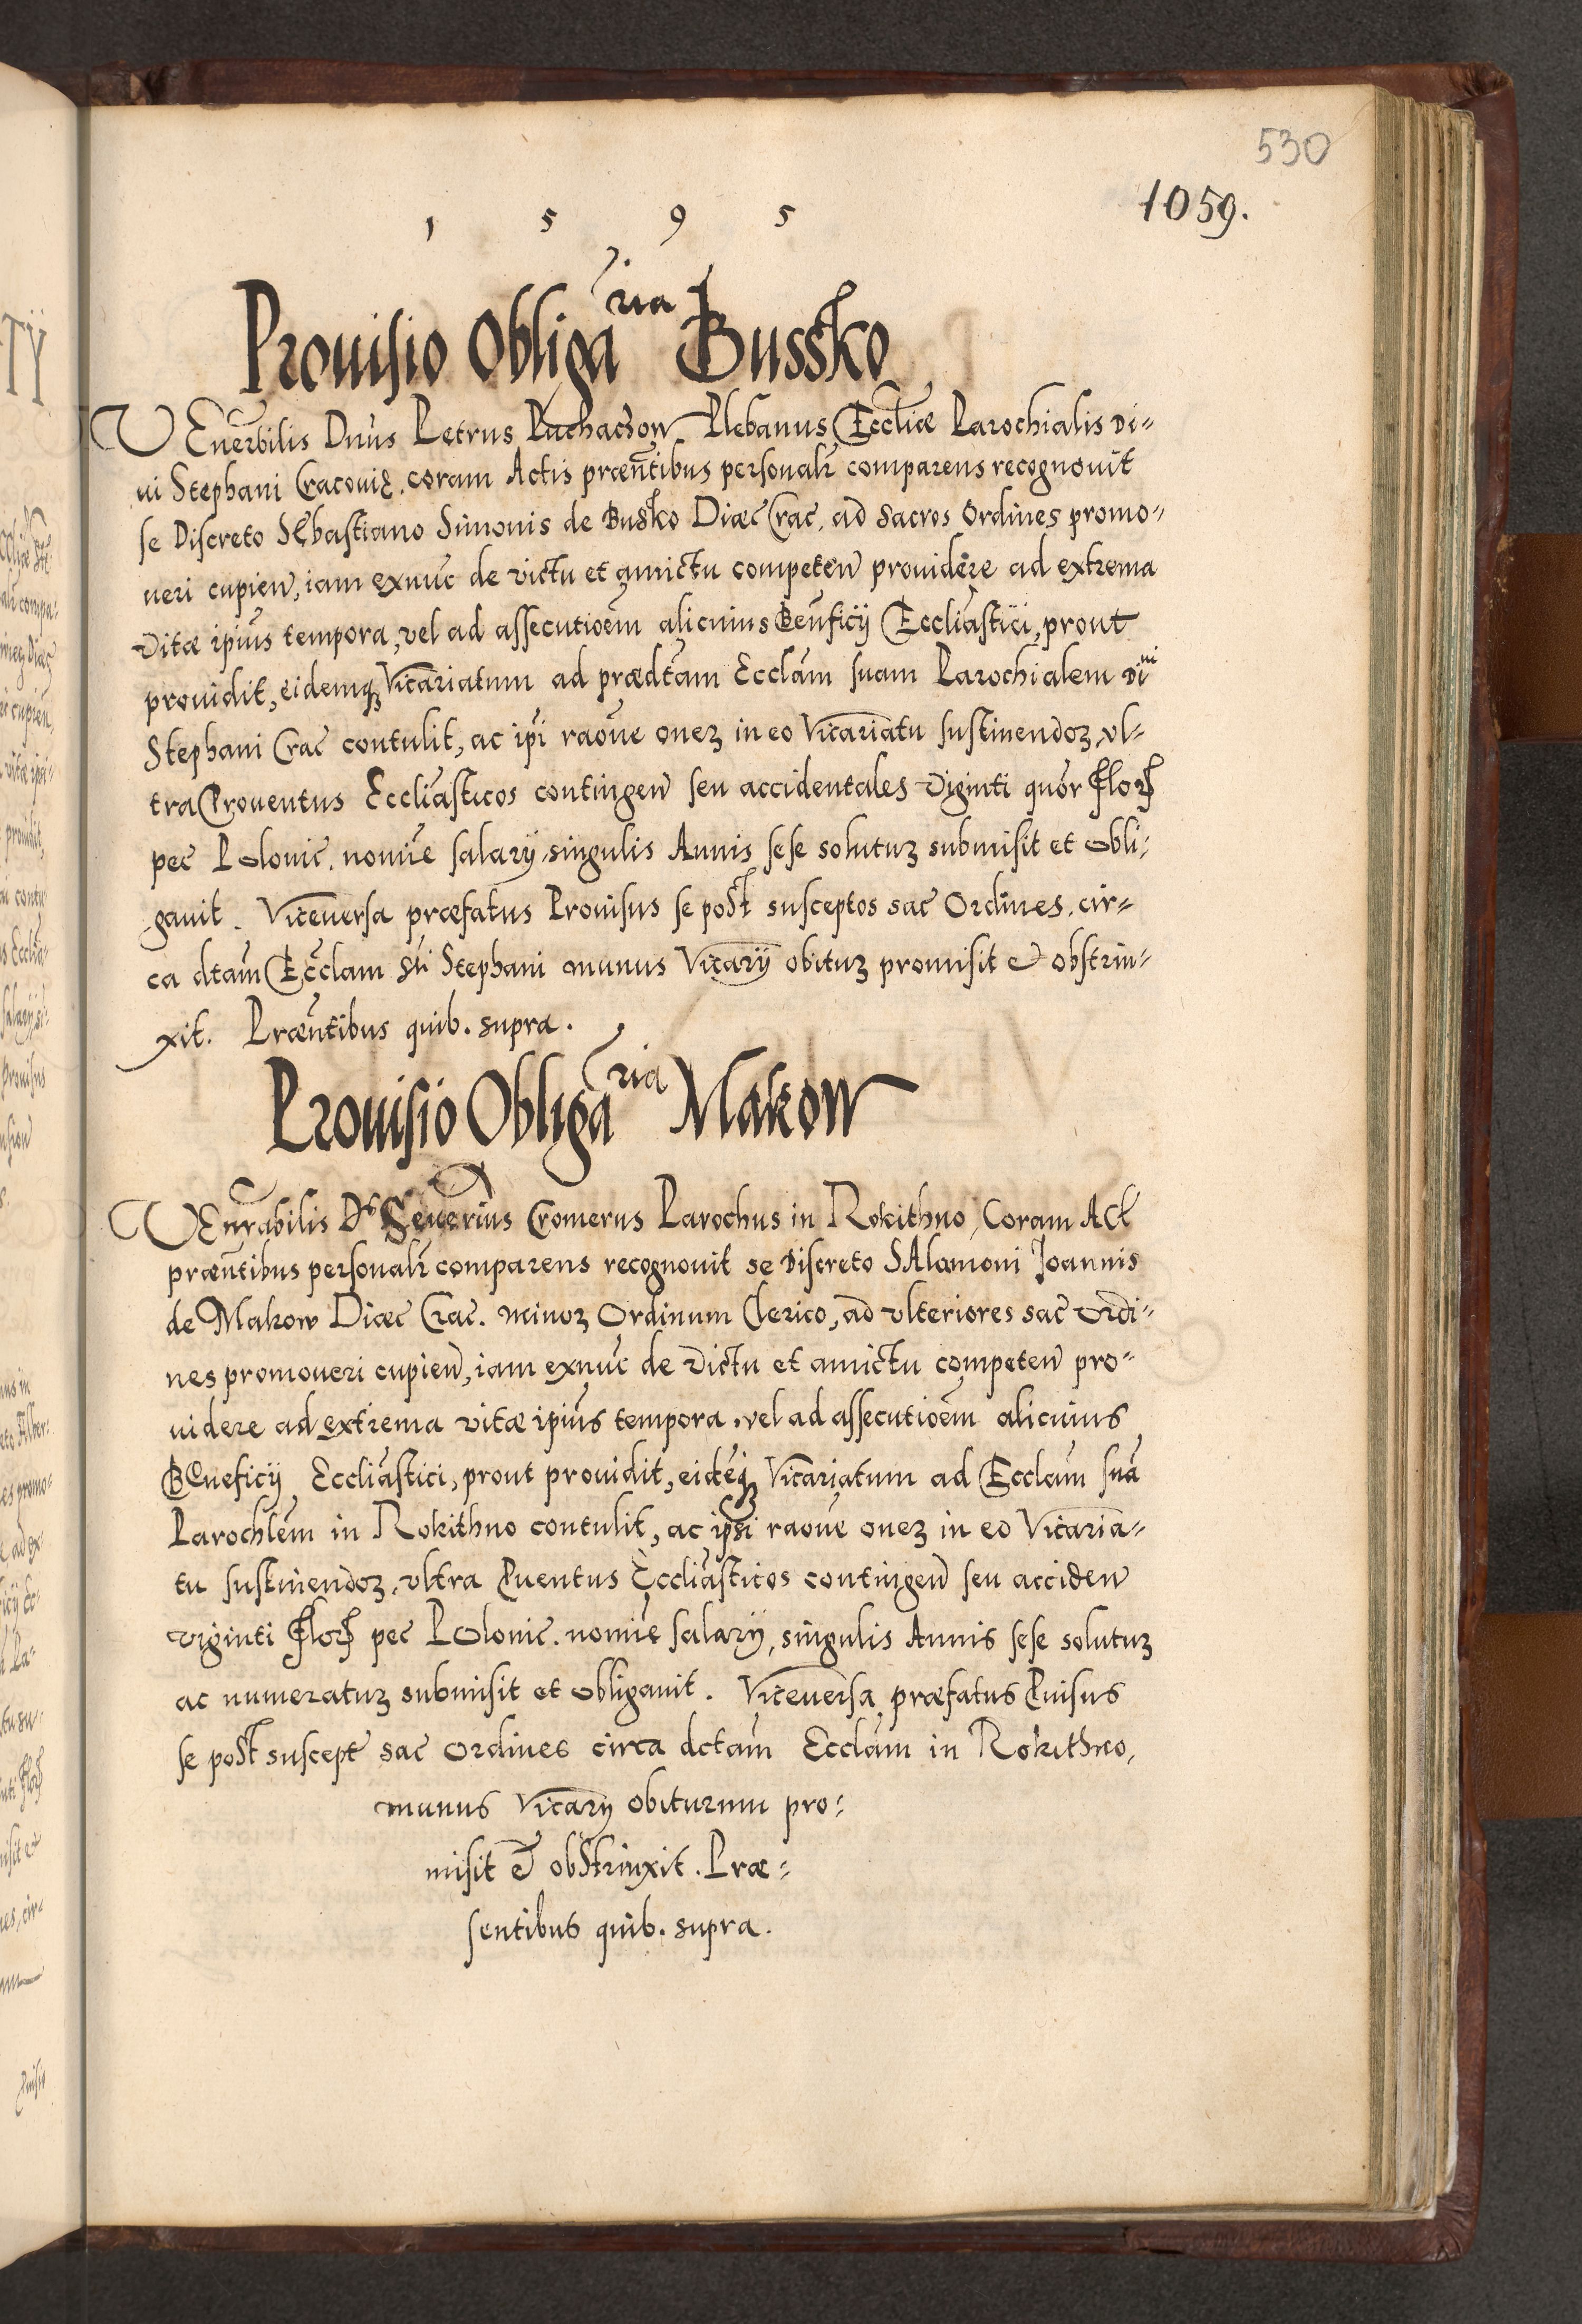 530
1 5 9 5
1059.
Prouisio Obliga^ria Bussko
VEnerbilis Dnus Petrus Puchaczow Plebanus Eccliæ Parochialis Di=
ui Stephani Cracouię. coram Actis præntibus personalr comparens recognouit
se Discreto Sebastiano Simonis de Busko Diæc Crac. ad Sacros Ordines promo=
ueri cupien, iam exnuc de victu et amictu competen prouidere ad extrema
Vitæ ipius tempora, vel ad assecutioem alicuius Benficij Eccliastici, prout
prouidit, eidemq Vicariatum ad prædtam Ecclam suam Parochialem Di^ui
Stephani Crac contulit, ac ipi raoue oneꝝ in eo Vicariatu sustinendoꝝ, vl=
tra Prouentus Eccliasticos contingen seu accidentales Viginti quor Flor
pec Polonic. nomie salarij singulis Annis sese solutuꝝ submisit et obli=
gauit. Viceuersa præfatus Prouisus se post susceptos sac Ordines, cir=
ca dtam Ecclam Sti Stephani munus Vicarij obituꝝ promisit et obstrin=
xit. Præntibus quib. supra.
Prouisio Obliga^ria Makow
VEnrabilis Ds Seuerius Cromerus Parochus in Rokithno, Coram Act
præntibus personalr comparens recognouit se Discreto SAlomoni Joannis
de Makow Diæc Crac. minoꝝ Ordinum Clerico, ad vlteriores sac Ordi=
nes promoueri cupien, iam exnuc de Victu et amictu competen pro=
uidere ad extrema vitæ ipius tempora, vel ad assecutioem alicuius
BEneficij Eccliastici, prout prouidit, eideq Vicariatum ad Ecclam sua
Parochlem in Rokithno contulit, ac ipsi raoue oneꝝ in eo Vicaria=
tu sustinendoꝝ, vltra Puentus Eccliasticos contingen seu acciden
viginti Flor pec Polonic. nomie salarij, singulis Annis sese solutuꝝ
ac numeratuꝝ submisit et obligauit. Viceuersa præfatus Puisus
se post suscept sac Ordines circa dctam Ecclam in Rokithno,
munus Vicarij obiturum pro=
misit et obstrinxit. Præ=
sentibus quib. supra.